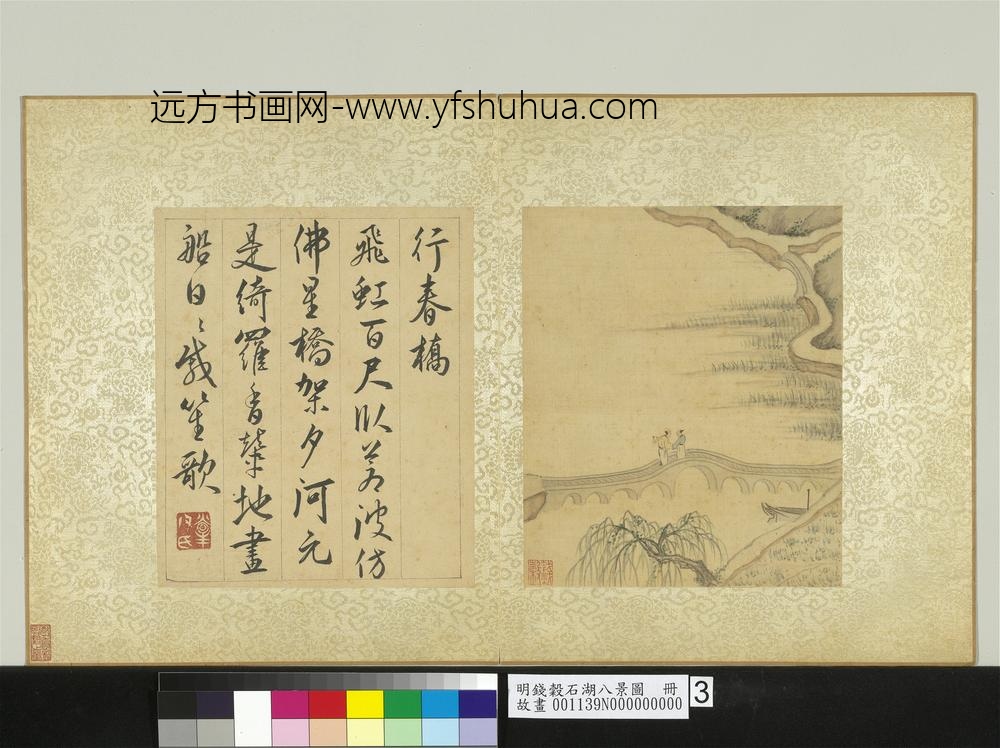 远方书画网-www.yfshuhua.com
行春橋
飛虹百尺臥蒼波仿
佛星橋架夕河元
是綺羅香輦地畫
船日〻載笙歌
明錢穀石湖八景圖 冊
故畫 001139N000000000
3